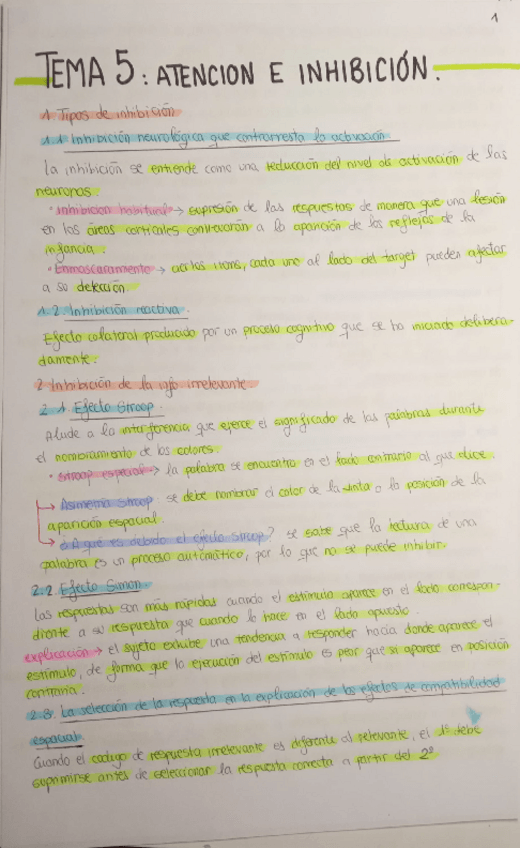 1
TEMA 5: ATENCION E INHIBICIÓN.
1 Tipos de inhibición
1.1 Inhibición neurológica que contrarresta la activación
La inhibición se entiende como una reducción del nivel de activación de las
neuronas.
· Inhibicion habitual → supresión de las respuestas de manera que una lesión
en las áreas corticales conllevarán a la aparición de los reflejos de la
infancia.
· Enmascaramiento → acilos items, cada uno al lado del target pueden afectar
a su detección.
1.2. Inhibición reactiva.
Efecto colateral producido por un proceso cognitivo que se ha iniciado delibera-
damente.
2 Inhibición de la info irrelevante
2.1. Efecto Stroop.
Alude a la interferencia que ejerce el significado de las palabras durante
el nombramiento de los colores.
· Stroop espacial → la palabra se encuentra en el lado contrario al que dice.
→ Asimetría Stroop se debe nombrar el color de la tinta o la posición de la
aparición espacial.
→ ¿A qué es debido el efecto Stroop? se sabe que la lectura de una
palabra es un proceso automático, por lo que no se puede inhibir.
2.2 Efecto Simon.
Las respuestas son más rápidas cuando el estímulo aparece en el lado correspon-
diente a su respuesta que cuando lo hace en el lado opuesto.
explicación → el sujeto exhibe una tendencia a responder hacia donde aparece el
estímulo, de forma que la ejecución del estímulo es peor que si aparece en posición
contraria.
2.3. La selección de la respuesta en la explicación de los efectos de compatibilidad
espacial
Cuando el codigo de respuesta irrelevante es diferente al relevante, el 1º debe
suprimirse antes de seleccionar la respuesta correcta a partir del 2º